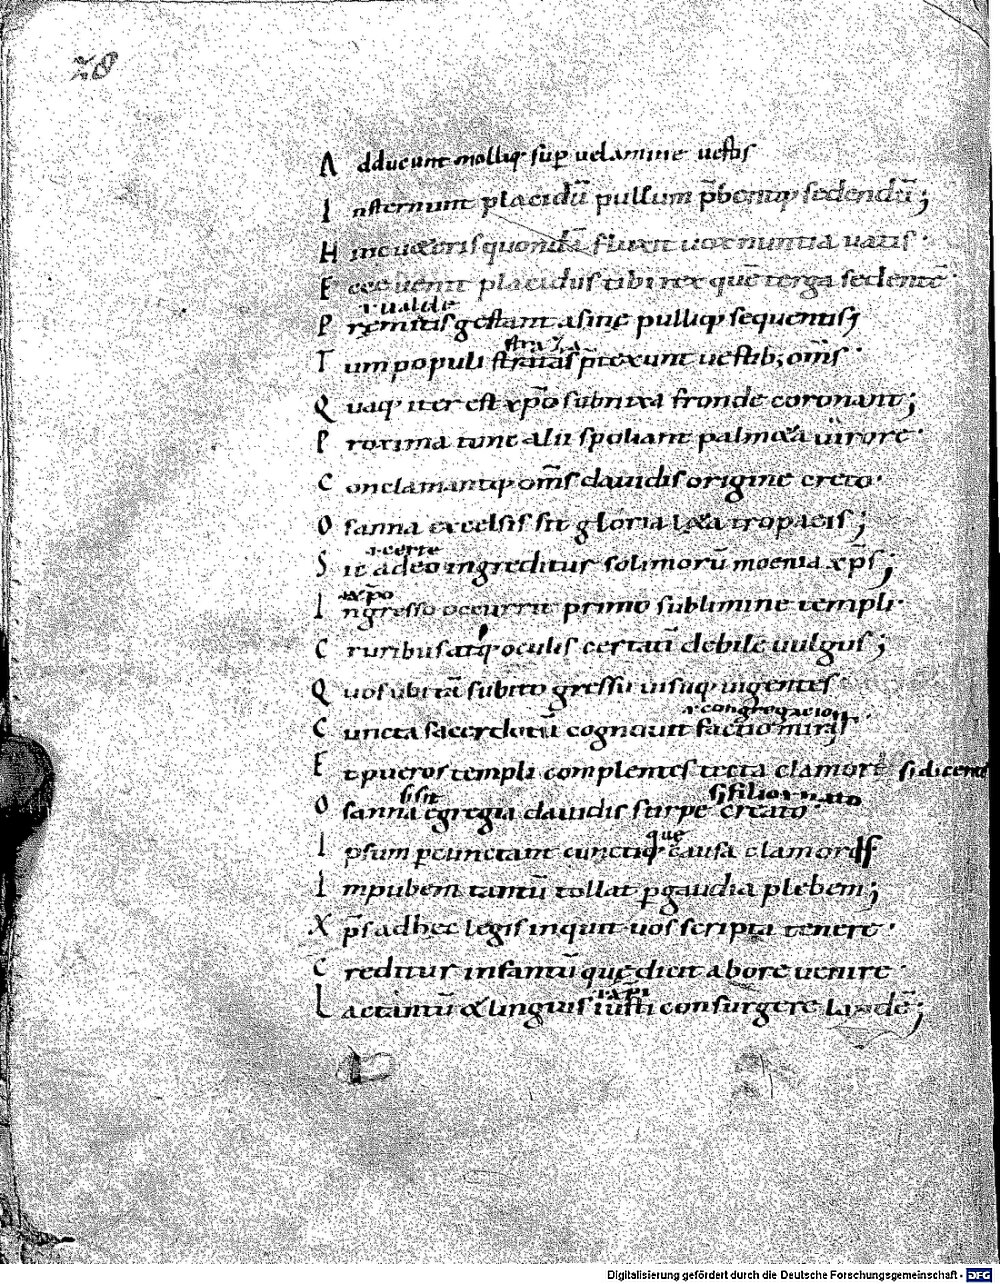 70
Adducunt molliq; sup̄ uelamine uestis
Insternunt placidū pullum p̄bentq; sedendū;
Hinc ueteris quondā fluxit uox nuntia uatis·
Ecce uenit placidus tibi rex quē terga sedentē·
ualde
Pręmitis gestant asinę pulliq; sequentis;
strata
Tum populi stratas p̄texunt uestib; om̄s·
Quaq; iter est xp̄o subnixa fronde coronant;
Proxima tunc alii spoliant palmeta uirore·
Conclamantq; om̄s dauidis origine creto·
Osanna excelsis sit gloria lęta tropaeis;
certe
Sic adeo ingreditur solimorū moenia xp̄s;
xp̄o
Ingresso occurrit primo sublimine templi·
Cruribus atq; oculis certatī debile uulgus;
Quos ubi tā subito gressu uisuq; uigentes
congregacio
Cuncta sacerdotū cognouit factio miras·
Et pueros templi complentes tecta clamore
sit
Osanna egregia dauidis stirpe creato·
que
Ipsum pcunctant cunctiq; causa clamor
Impubem tantū tollat p gaudia plebem;
Xp̄s ad hec legis inquit uos scripta tenere·
Creditur infantū quę dicit ab ore uenire·
Lactantū & linguis iusti consurgere laudē;
Digitalisierung gefördert durch die Deutsche Forschungsgemeinschaft - DFG